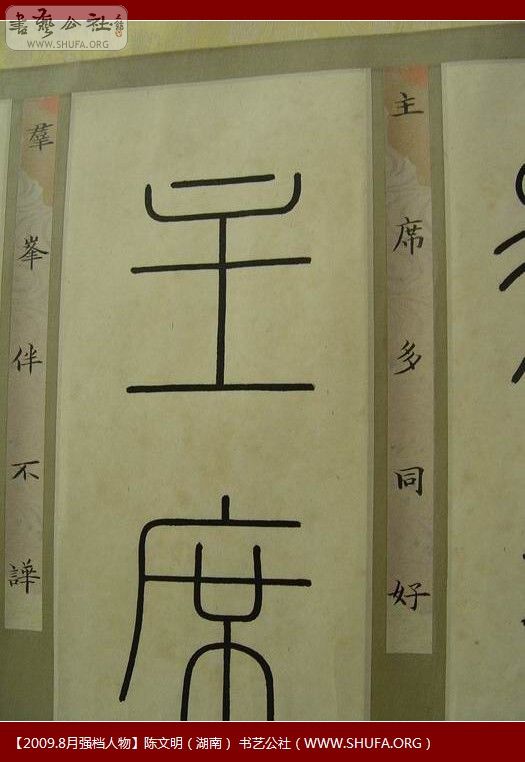 書藝公社
WWW.SHUFA.ORG
主席多同好
主席
羣峯伴不譁
【2009.8月强档人物】陈文明（湖南） 书艺公社（WWW.SHUFA.ORG）